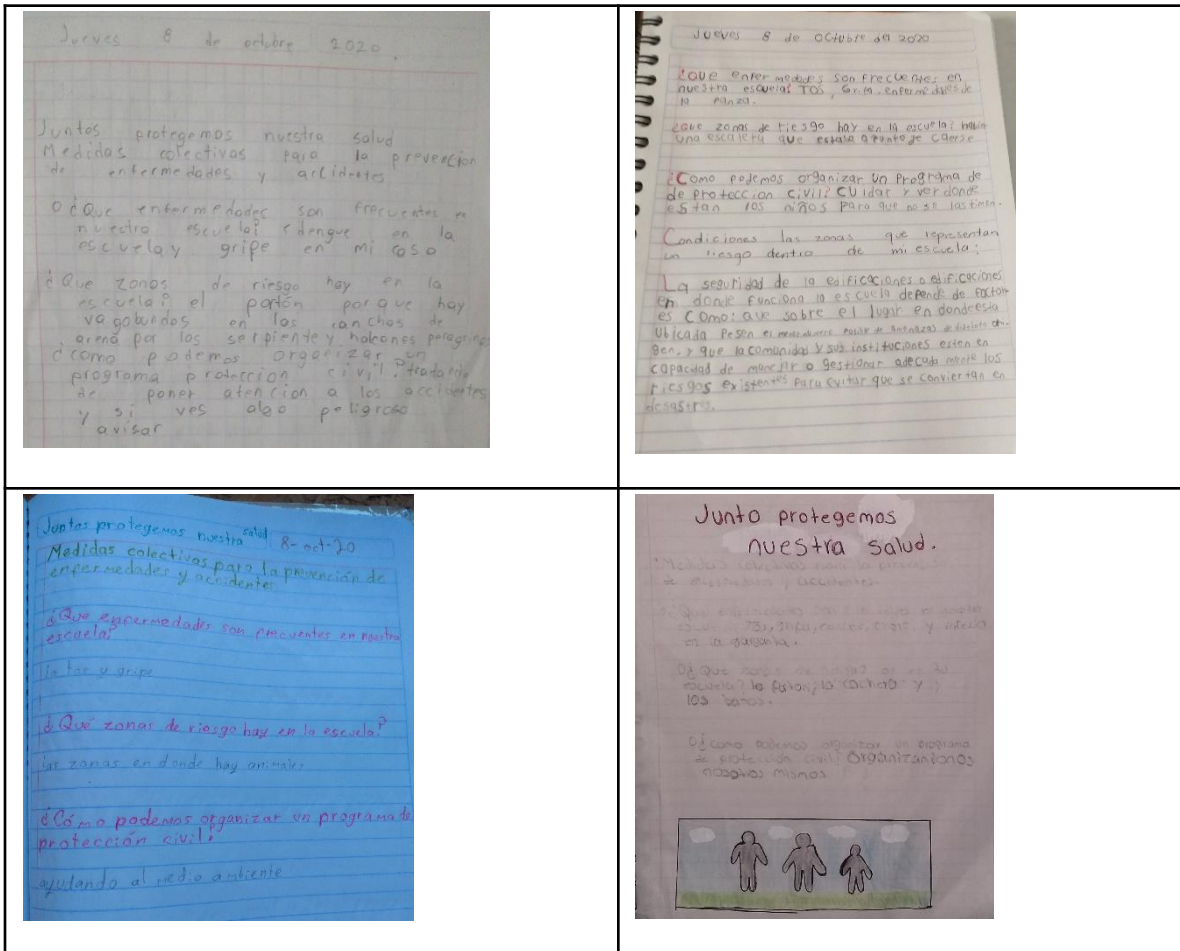 Jueves 8 de octubre 2020
Juntos protegemos nuestra salud
Medidas colectivas para la prevencion
de enfermedades y accidentes
O ¿Que enfermedades son frecuentes en
nuestra escuela? dengue en la
escuela y gripe en mi casa
¿Que zonas de riesgo hay en la
escuela? el portón porque hay
vagobundos en las canchas de
arena por las serpiente y halcones peregrino
¿como podemos organizar un
programa protección civil? tratando
de poner atencion a los accidentes
y si ves algo peligroso
avisar
Jueves 8 de octubre del 2020
¿QUE enfermedades son frecuentes en
nuestra escuela? TOS, Gripa, enfermedades de
la panza.
¿QUE zonas de riesgo hay en la escuela? había
una escalera que estaba apunto de caerse
¿Como podemos organizar un Programa de
de proteccion civil? Cuidar y ver donde
estan los niños para que no se lastimen.
Condiciones las zonas que representan
un riesgo dentro de mi escuela:
La seguridad de la edificaciones o edificaciones
en donde funciona la escuela depende de factor
es como: que sobre el lugar en donde esta
ubicada pesen el
gen, y que la comunidad y sus instituciones esten en
capacidad de manejar o gestionar adecada mente los
riesgos existentes para evitar que se conviertan en
desastres.
Juntos protegemos nuestra salud 8-oct-20
Medidas colectivas para la prevención de
enfermedades y accidentes
¿Que enfermedades son frecuentes en nuestra
escuela?
la tos y gripe
¿Qué zonas de riesgo hay en la escuela?
las zonas en donde hay animales
¿Cómo podemos organizar un programa de
protección civil?
ayudando al medio ambiente
Junto protegemos
nuestra salud.
Medidas colectivas para la
de enfermedades y accidentes.
¿Que
Tos, gripa, y
en la garganta.
¿Que de riesgo
escuela? la y
los baños.
¿como podemos organizar un programa
de protección civil? Organizanionos
nosotros mismos